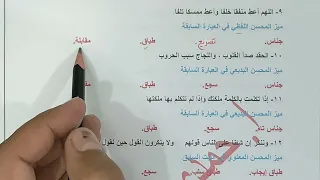 ٩- اللهم أعط منفقا خلفا وأعط ممسكا تلفا
ميّز المحسن اللفظي في العبارة السابقة
جناس. تصريع. طباق. مقابلة.
١٠- الحقد صدأ القلوب ، واللجاج سبب الحروب
ميّز المحسن البديعي في العبارة السابقة
جناس. سجع. طباق.
١١- إذا تكلمت بالكلمة ملكتك وإذا لم تتكلم بها ملكتها
ميّز المحسن البديعي في العبارة السابقة
جناس تام. سجع. طباق
١٢- وننكر إن شئنا على الناس قولهم ولا ينكرون القول حين نقول
ميّز المحسن المعنوي السابق
طباق إيجاب. طباق سلب. سجع.